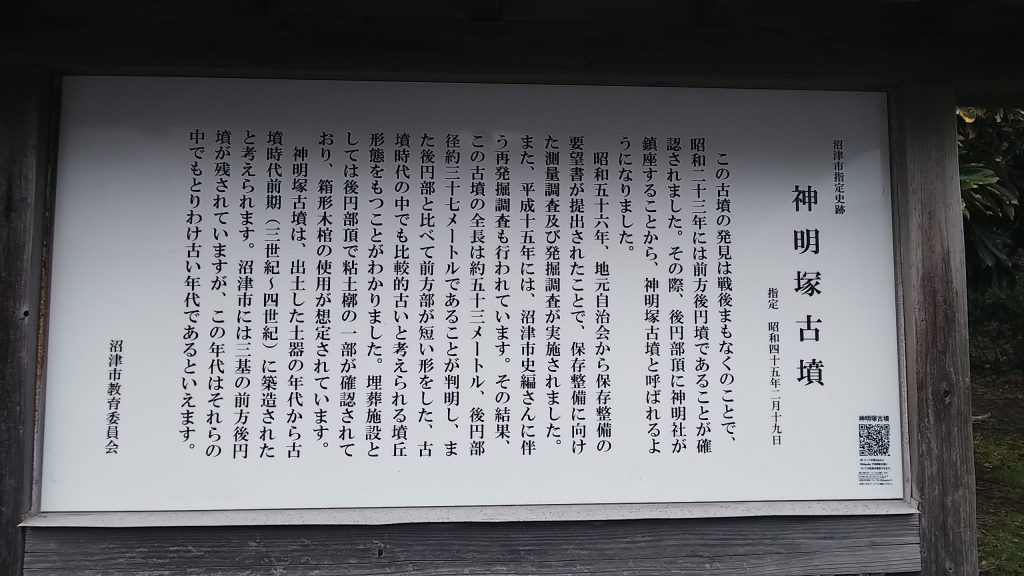 沼津市指定史跡
神明塚古墳
指定 昭和四十五年二月十九日
この古墳の発見は戦後まもなくのことで、
昭和二十三年には前方後円墳であることが確
認されました。その際、後円部頂に神明社が
鎮座することから、神明塚古墳と呼ばれるよ
うになりました。
昭和五十六年、地元自治会から保存整備の
要望書が提出されたことで、保存整備に向け
た測量調査及び発掘調査が実施されました。
また、平成十五年には、沼津市史編さんに伴
う再発掘調査も行われています。その結果、
この古墳の全長は約五十三メートル、後円部
径約三十七メートルであることが判明し、ま
た後円部と比べて前方部が短い形をした、古
墳時代の中でも比較的古いと考えられる墳丘
形態をもつことがわかりました。埋葬施設と
しては後円部頂で粘土槨の一部が確認されて
おり、箱形木棺の使用が想定されています。
神明塚古墳は、出土した土器の年代から古
墳時代前期（三世紀～四世紀）に築造された
と考えられます。沼津市には三基の前方後円
墳が残されていますが、この年代はそれらの
中でもとりわけ古い年代であるといえます。
沼津市教育委員会
神明塚古墳